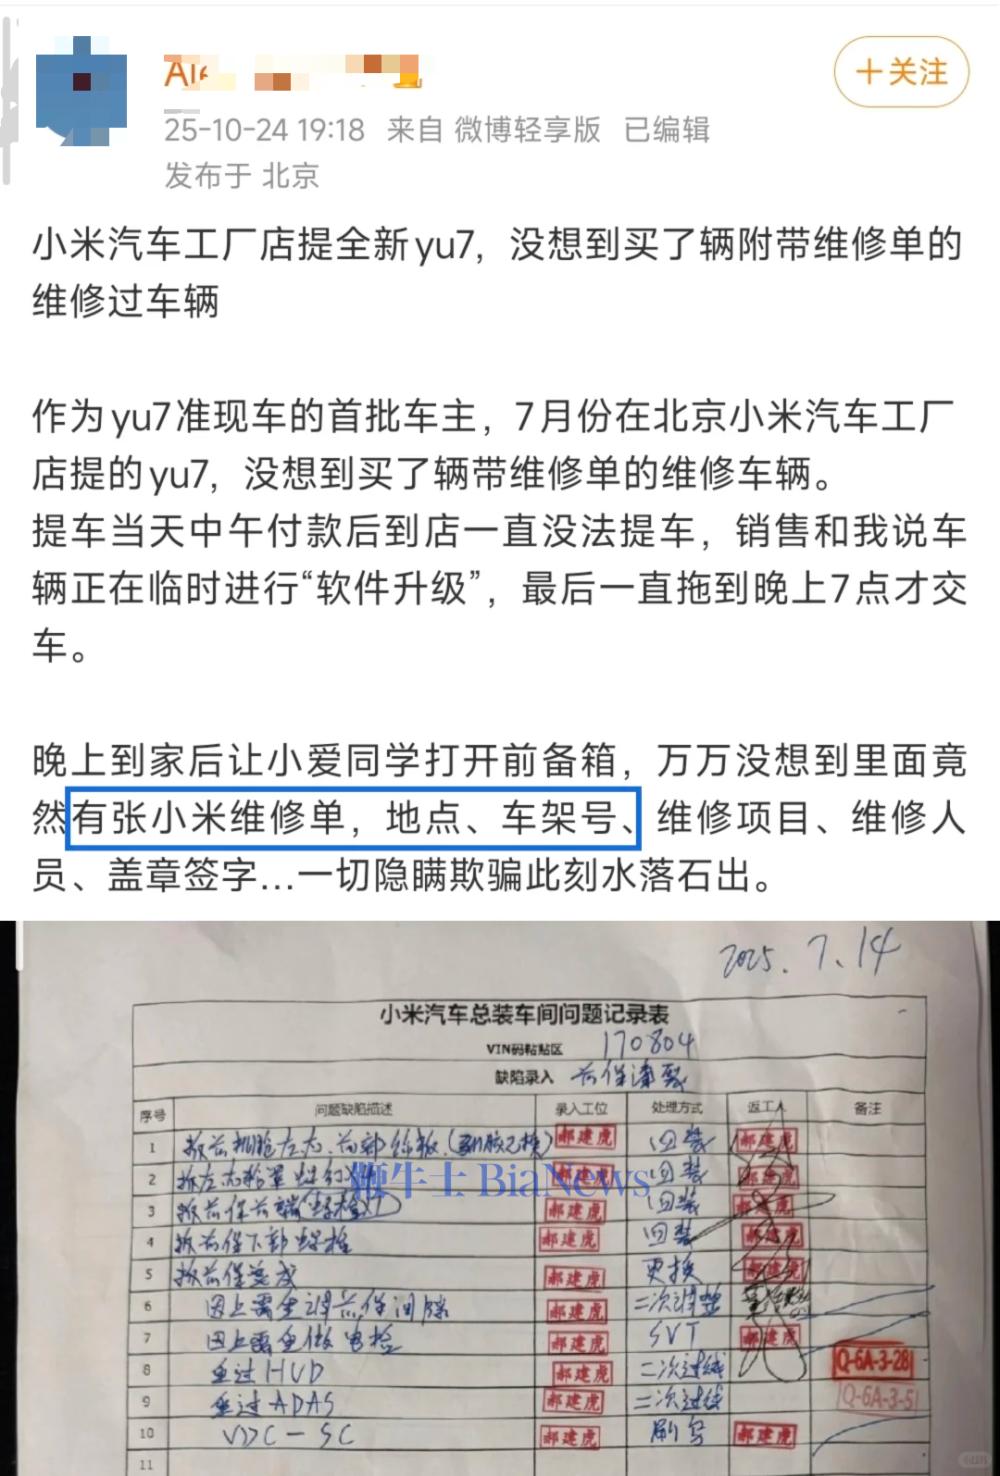 25-10-24 19:18 来自 微博轻享版 已编辑
+关注
发布于 北京
小米汽车工厂店提全新yu7，没想到买了辆附带维修单的
维修过车辆
作为yu7准现车的首批车主，7月份在北京小米汽车工厂
店提的yu7，没想到买了辆带维修单的维修车辆。
提车当天中午付款后到店一直没法提车，销售和我说车
辆正在临时进行“软件升级”，最后一直拖到晚上7点才交
车。
晚上到家后让小爱同学打开前备箱，万万没想到里面竟
然有张小米维修单，地点、车架号、维修项目、维修人
员、盖章签字...一切隐瞒欺骗此刻水落石出。
2025.7.14
小米汽车总装车间问题记录表
VIN码粘贴区 170804
缺陷录入 前保漆裂
序号 问题缺陷描述 录入工位 处理方式 返工人 备注
1 郝建虎 回装 郝建虎
2 回装 郝建虎
BiaNews
3 郝建虎 回装 郝建虎
4 拆前保下部螺栓 郝建虎 回装 郝建虎
5 拆前保总成 郝建虎 更换 郝建虎
6 因上需重调前保间隙 郝建虎 二次调整
7 因上需重做电检 郝建虎 SVT 郝建虎
8 重过HUD 郝建虎 二次过线 Q-6A-3-28
9 重过ADAS 郝建虎 二次过线 Q-6A-3-5
10 VDC-SC 郝建虎 刷写 郝建虎
11